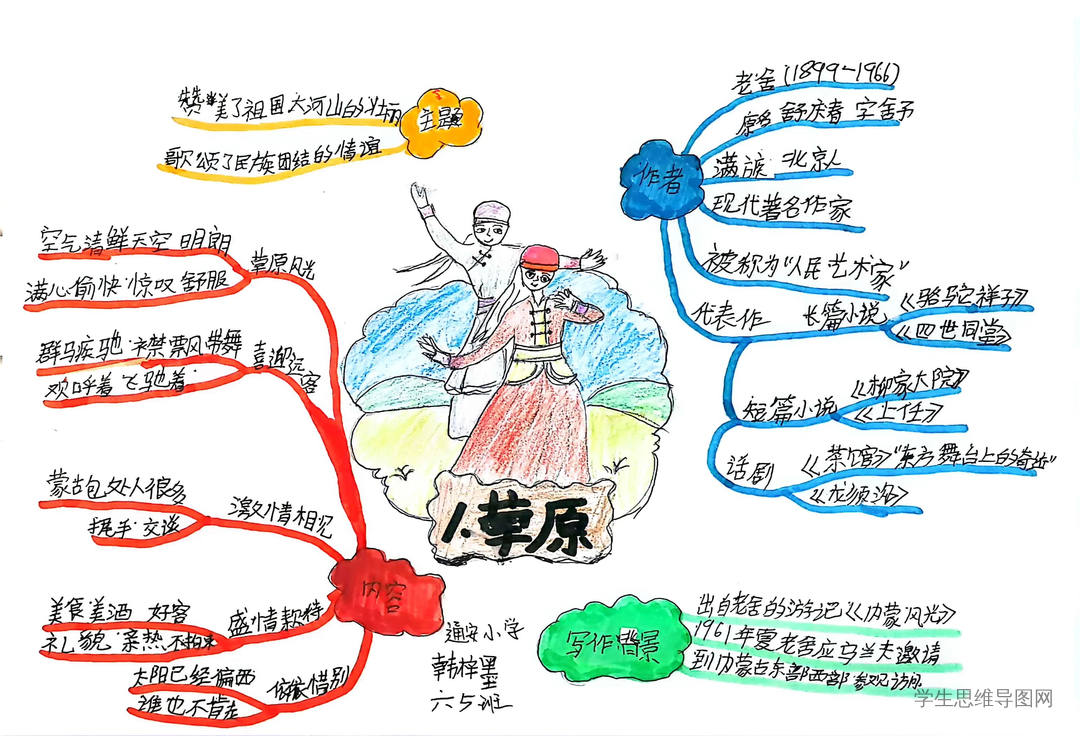 主题
赞美了祖国大河山的壮丽
歌颂了民族团结的情谊
作者
老舍(1899-1966)
原名 舒庆春 字舍予
满族 北京人
现代著名作家
被称为"人民艺术家"
代表作
长篇小说
《骆驼祥子》
《四世同堂》
短篇小说
《柳家大院》
《上任》
话剧
《茶馆》"东方舞台上的奇迹"
《龙须沟》
草原风光
空气清鲜天空 明朗
满心愉快 惊叹 舒服
喜迎远客
群马疾驰 襟飘带舞
欢呼着 飞驰着
激情相见
蒙古包处人很多
握手 交谈
内容
盛情款待
美食美酒 好客
礼貌 亲热
惜别
太阳已经偏西
谁也不肯走
1.草原
通安小学
韩梓墨
六5班
写作背景
出自老舍的游记《内蒙风光》
1961年夏老舍应乌兰夫邀请
到内蒙古东部西部参观访
学生思维导图网